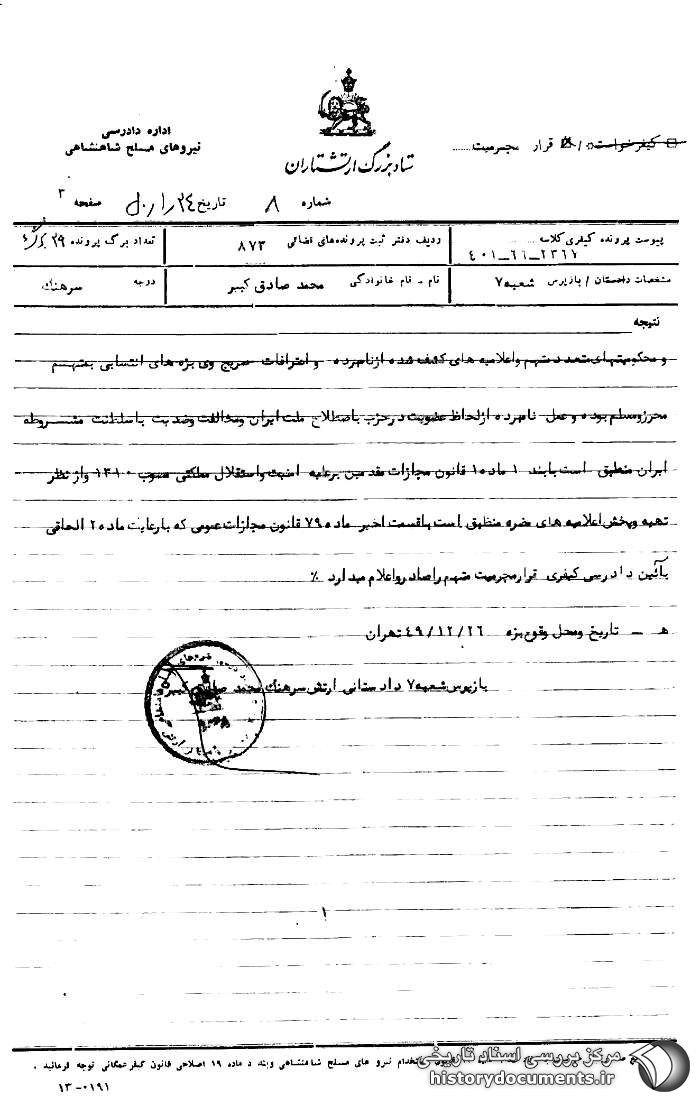 اداره دادرسی
نیروهای مسلح شاهنشاهی
ستاد بزرگ ارتشتاران
کیفرخواست / قرار مجرمیت
شماره ۸ تاریخ ۲۴ / ۱ / ۵۰ صفحه ۳
پیوست پرونده کیفری کلاسه ۲۳۶۷-۶۶-۴۰۱
ردیف دفتر ثبت پرونده‌های قضائی ۸۷۳
تعداد برگ پرونده ۲۹
مشخصات دادستان / بازپرس شعبه ۷
نام - نام خانوادگی محمد صادق کبیر
درجه سرهنک
نتیجه
و محکومیتهای متعدد متهم واعلامیه های کشف شده ازنامبرده و اعترافات صریح وی بزه های انتسابی بمتهم
محرزومسلم بوده و عمل نامبرده ازلحاظ عضویت درحزب باصطلاح ملت ایران ومخالفت وضدیت باسلطنت مشروطه
ایران منطبق است بابند ۱ ماده۱ قانون مجازات مقدمین برعلیه امنیت واستقلال مملکتی مصوب ۱۳۱۰ واز نظر
تهیه وپخش اعلامیه های مضره منطبق است باقسمت اخیر ماده ۷۹ قانون مجازات عمومی که بارعایت ماده ۲ الحاقی
بآئین دادرسی کیفری قرارمجرمیت متهم راصادرواعلام میدارد ٪
هـ - تاریخ ومحل وقوع بزه ۴۹/۱۲/۲۶ تهران
بازپرس شعبه ۷ دادستانی ارتش سرهنك محمد صادق کبیر
۱
استخدام نیرو های مسلح شاهنشاهی وبند د ماده ۱۹ اصلاحی قانون کیفر همگانی توجه فرمائید .
۱۳-۰۱۹۱
مرکز بررسی اسناد تاریخی
historydocuments.ir